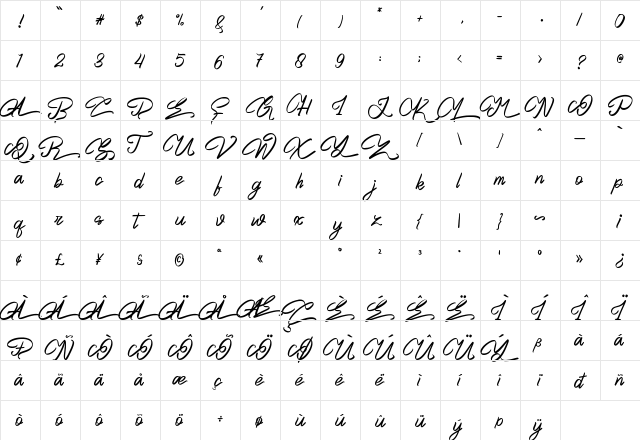 ! " # $ % & ' ( ) * + , - . / 0
1 2 3 4 5 6 7 8 9 : ; < = > ? @
A B C D E F G H I J K L M N O P
Q R S T U V W X Y Z [ \ ] ^ _ `
a b c d e f g h i j k l m n o p
q r s t u v w x y z { | } ~ ¡
¢ £ ¥ § © ª « ° ² ³ ´ · ¹ º » ¿
À Á Â Ã Ä Å Æ Ç È É Ê Ë Ì Í Î Ï
Ð Ñ Ò Ó Ô Õ Ö Ø Ù Ú Û Ü Ý ß à á
â ã ä å æ ç è é ê ë ì í î ï đ ñ
ò ó ô õ ö ÷ ø ù ú û ü ý þ ÿ